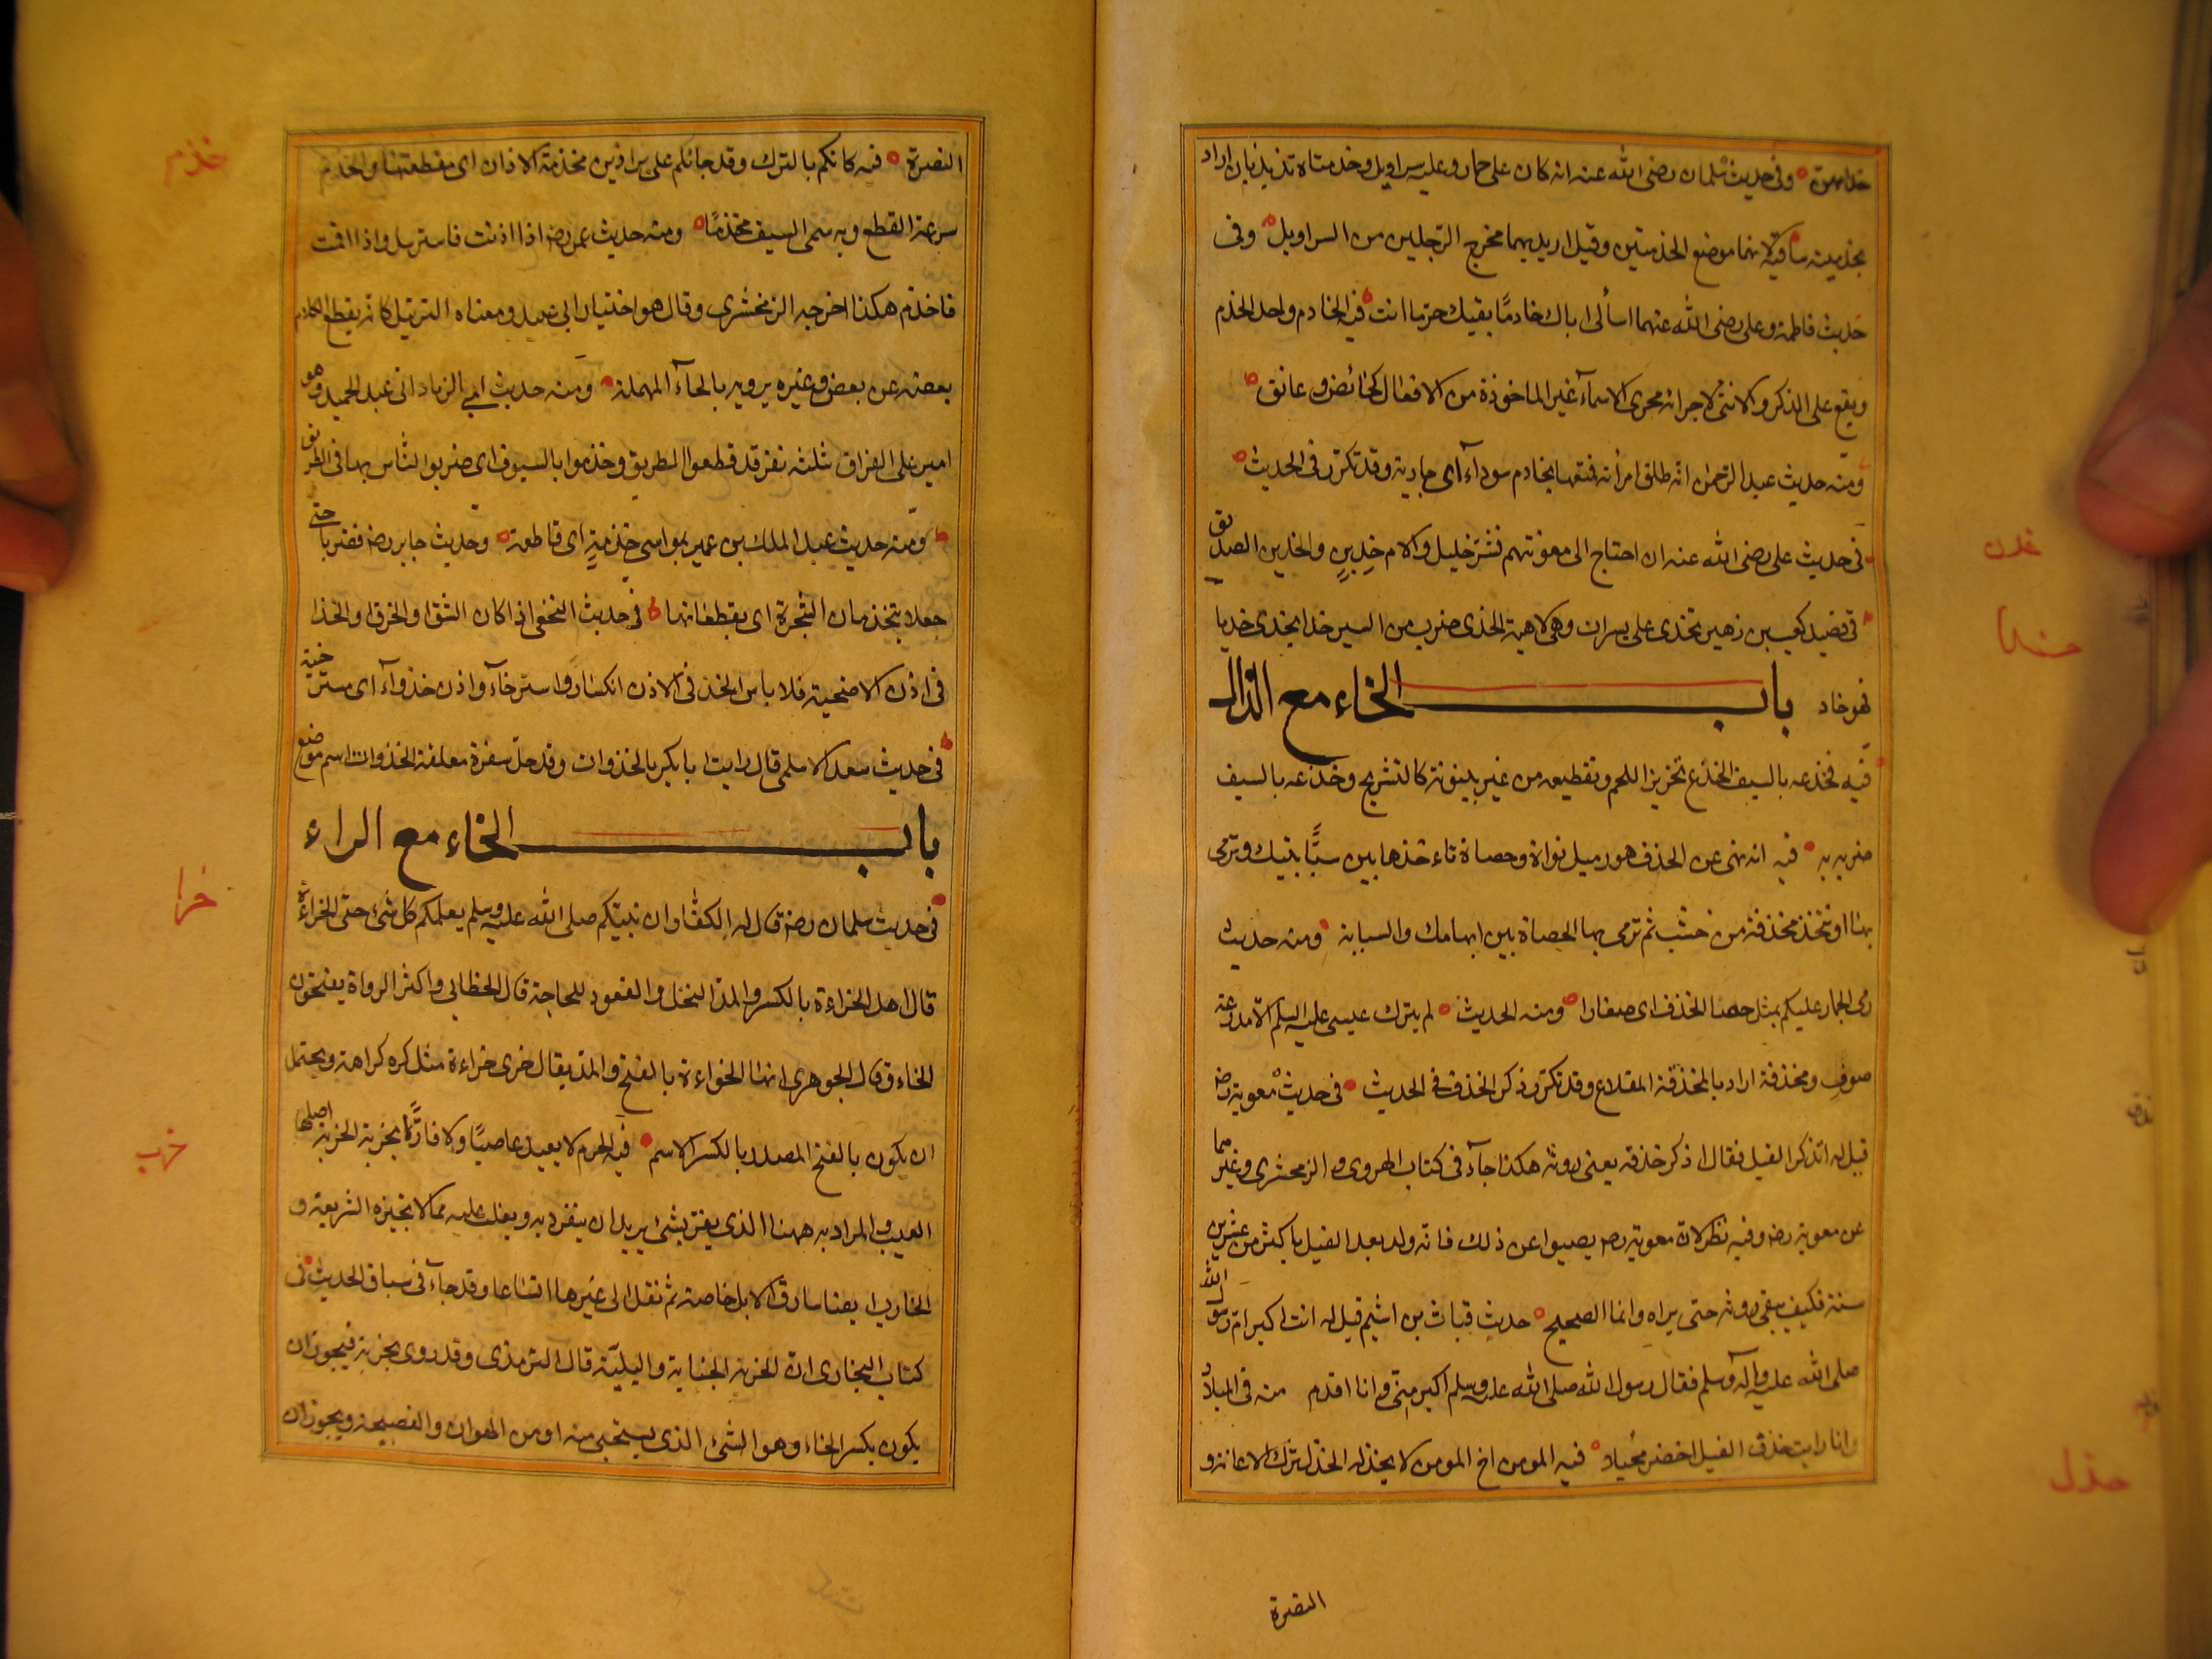 خدامهن وفى حديث سلمان رضى الله عنه انه كان على حمار وعليه سراويل وخدمتاه تذبذبان اراد
بخدمتيه ساقيه لانهما موضع الخدمتين وقيل اريد بهما مخرج الرجلين من السراويل وفى
حديث فاطمة وعلى رضى الله عنهما اسألى اباك خادمًا يقيك حرما انت فيه الخادم واحد الخدم
ويقع على الذكر والانثى لاجرائه مجرى الاسمآء غير الماخوذة من الافعال كحائض وعاتق
ومنه حديث عبد الرحمن انه طلق امرأته فمتعها بخادم سودآء اى جارية وقد تكرر فى الحديث
فى حديث على رضى الله عنه ان احتاج الى معونتهم فشر خليل والام خدين والخدين الصديق
فى قصيد كعب بن زهير تخدى على يسرات وهى لاهية الخدى ضرب من السير خدا يخدى خديا
فهو خاد باب الخاء مع الذال
فيه فخذعه بالسيف الخذع تحزيز اللحم وتقطيعه من غير بينونة كالتشريح وخذعه بالسيف
ضربه به فيه انه نهى عن الخذف هو رميك نواة وحصاة تاخذها بين سبابتيك وترمى
بها او تتخذ مخذفة من خشب ثم ترمى بها الحصاة بين ابهامك والسبابة ومنه حديث
رمى الجمار عليكم بمثل حصا الخذف اى صغارا ومنه الحديث لم يترك عيسى عليه السلم الا مدرعة
صوف ومخذفة اراد بالمخذفة المقلاع وقد تكرر ذكر الخذف فى الحديث فى حديث معوية رضه
قيل له اتذكر الفيل فقال اذكر خذقه يعنى روثه هكذا جآء فى كتاب الهروى والزمخشرى وغيرهما
عن معوية رضه وفيه نظر لان معوية رضه يصبوا عن ذلك فانه ولد بعد الفيل باكثر من عشرين
سنة فكيف يبقى روثه حتى يراه وانما الصحيح حديث قباث بن اشيم قيل له انت اكبر ام رسول الله
صلى الله عليه وآله وسلم فقال رسول الله صلى الله عليه وسلم اكبر منى وانا اقدم منه فى الميلاد
وانا رايت خذق الفيل اخضر محيلا فيه المومن اخ المومن لا يخذله الخذل ترك الاعانة و
النصرة
خدن
خدا
خذل
النصرة فيه كانكم بالترك وقد جائكم على براذين مخذمة الاذان اى مقطعتها والخذم
سرعة القطع وبه سمى السيف مخذمًا ومنه حديث عمر رضه اذا اذنت فاسترسل واذا اقمت
فاخذم هكذا اخرجه الزمخشرى وقال هو اختيار ابى عبيد ومعناه الترتيل كانه يقطع الكلام
بعضه عن بعض وغيره يرويه بالحآء المهملة ومنه حديث ابى الزناد اتى عبد الحميد وهو
امير على العراق بثلثة نفر قد قطعوا الطريق وخذموا بالسيوف اى ضربوا الناس بها فى الطريق
ومنه حديث عبد الملك بن عمير بمواسى خذمة اى قاطعة وحديث جابر رضه فضربا حتى
جعلا يتخذمان الشجرة اى يقطعانها فى حديث النخعى اذا كان الشق او الخرق او الخذا
فى اذن الاضحية فلا باس الخذ فى الاذن انكسار واسترخآء واذن خذوآء اى مسترخية
فى حديث سعد الاسلمى قال رايت ابا بكر بالخذوات وقد حل سفرة معلقة الخذوات اسم موضع
باب الخاء مع الراء
فى حديث سلمان رضه قال له الكفار ان نبيكم صلى الله عليه وسلم يعلمكم كل شئ حتى الخراءة
قال احل الخراءة بالكسر والمد التخلى والقعود للحاجة قال الخطابى واكثر الرواة يفتحون
الخاء وقال الجوهرى انها الخراءة بالفتح والمد يقال خرى خراءة مثل كره كراهة ويحتمل
ان يكون بالفتح المصدر بالكسر الاسم فيه الحرم لا يعيد عاصيًا ولا فارًّا بخربة الخربة اصلها
العيب والمراد به ههنا الذى يفر بشئ يريد ان ينفرد به ويغلب عليه مما لا تجيزه الشريعة و
الخارب ايضا سارق الابل خاصة ثم نقل الى غيرها اتساعا وقد جآء فى سياق الحديث فى
كتاب البخارى ان الخربة الجناية والبلية قال الترمذى وقد روى بخزية فيجوز ان
يكون بكسر الخاء وهو الشئ الذى يستحيى منه او من الهوان والفضيحة ويجوز ان
خذم
خرا
خرب